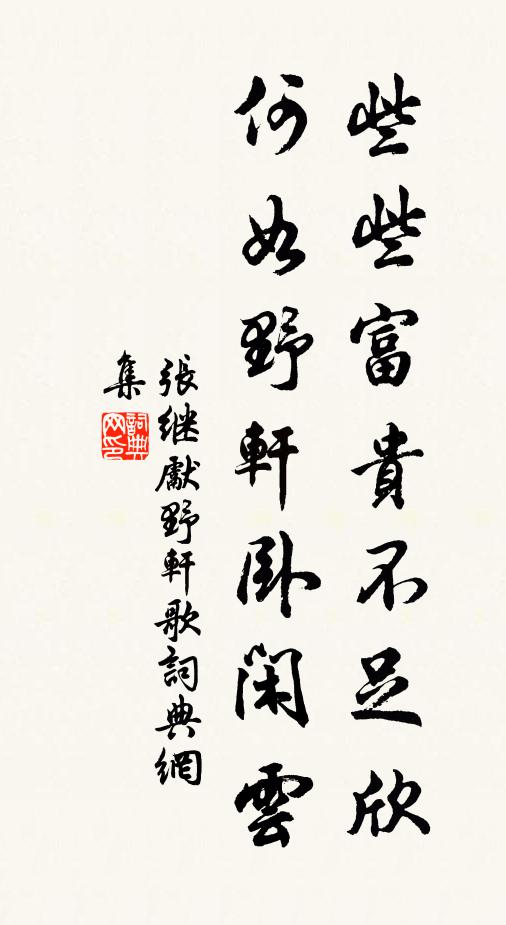 些些富貴不足欣
何如野軒臥閑雲
張继獻野軒歌詞典網
集
詞典
网印